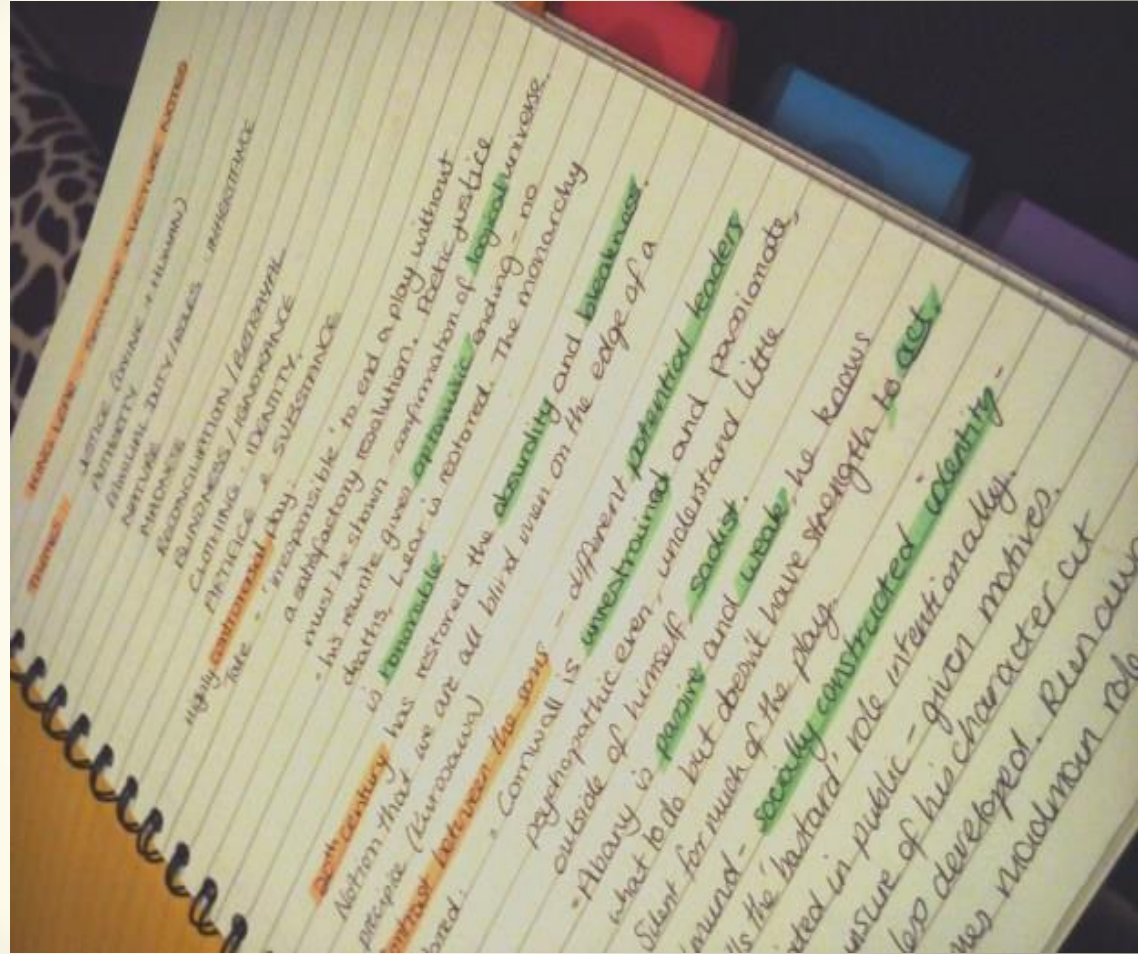 KING LEAR - LECTURE NOTES
THEMES:
JUSTICE (DIVINE + HUMAN)
AUTHORITY
FAMILIAL DUTY/ROLES INHERITANCE
NATURE
MADNESS
RECONCILIATION / BETRAYAL
BLINDNESS / IGNORANCE
CLOTHING: IDENTITY,
ARTIFICE & SUBSTANCE
Highly play:
Tate - 'irresponsible' to end a play without
a satisfactory resolution. Poetic justice
must be shown - confirmation of logical universe.
- his rewrite gives optimistic ending - no
deaths. Lear is restored. The monarchy
is
20th century has restored the absurdity and bleakness.
Notion that we are all blind men on the edge of a
precipice (Kurosawa)
contrast between the sons
- Cornwall is - different potential leaders
unrestrained and passionate,
psychopathic even, understand little
outside of himself. sadist.
- Albany is passive and weak, he knows
what to do but doesn't have strength to act.
Silent for much of the play.
mund - socially constructed identity -
lls the 'bastard' role intentionally.
ted in public - given motives.
unsure of his character cut
less developed. Runs away
mes madman role